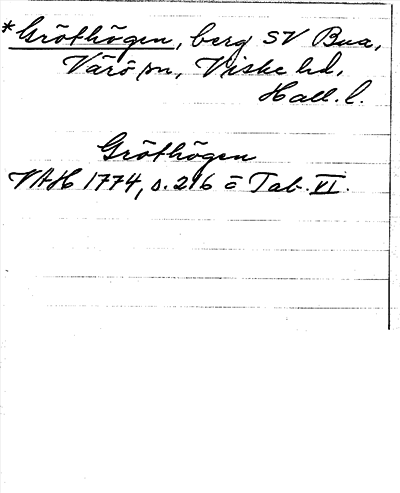 *Gröthögen, berg SV Bua,
Värö sn, Viske hd,
Hall. l.
Gröthögen
VAH 1774, s. 216 å Tab. VI.